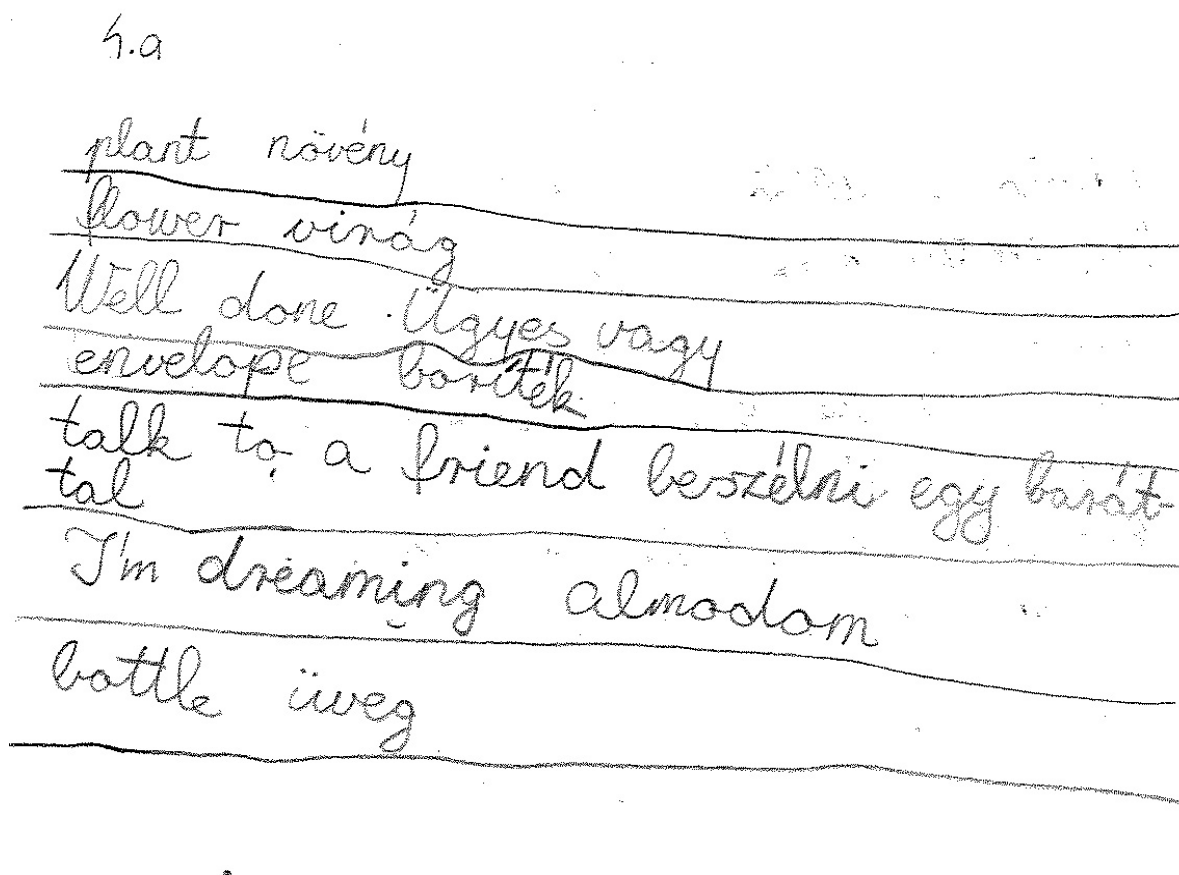 4.a
plant növény
flower virág
Well done Ügyes vagy
envelope boríték
talk to a friend beszélni egy barát-
tal
I'm dreaming almodom
bottle üveg